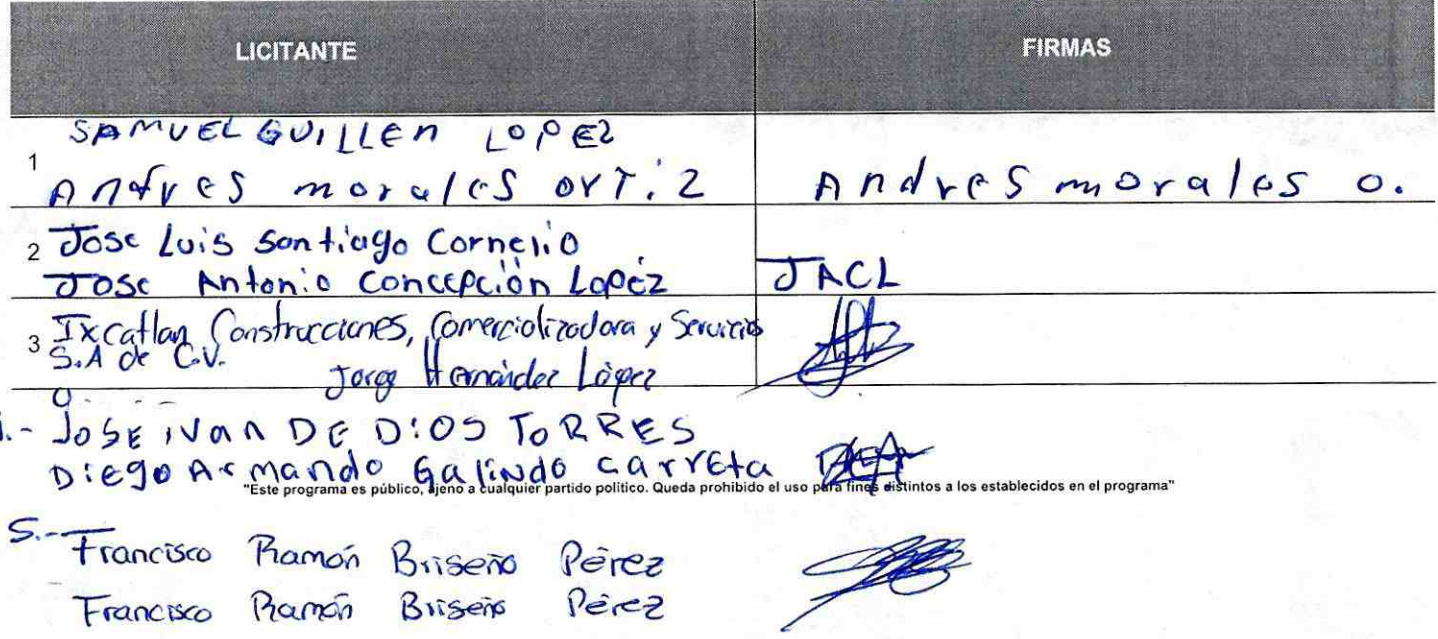 LICITANTE FIRMAS
SAMUEL GUILLEN LOPEZ
1
Andres morales orTiz Andres morales o.
2 Jose Luis Santiago Cornelio
Jose Antonio Concepción Lopéz JACL
3 Ixcatlan Construcciones, Comercializadora y Servicios
S.A de C.V.
Jorge Hernández López
JOSE IVan DE DIOS TORRES
DIEgo Armando Galindo carreta
"Este programa es público, ajeno a cualquier partido político. Queda prohibido el uso para fines distintos a los establecidos en el programa"
5.- Francisco Ramón Briseño Pérez
Francisco Ramón Briseño Pérez